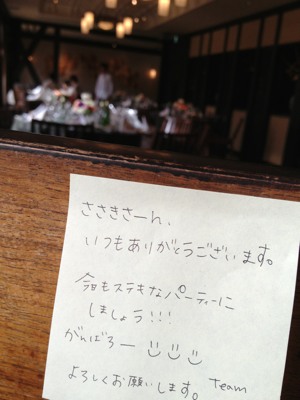 ささきさーん、
いつもありがとうございます。
今日もステキなパーティーに
しましょう!!!
がんばろー
よろしくお願いします。 Team